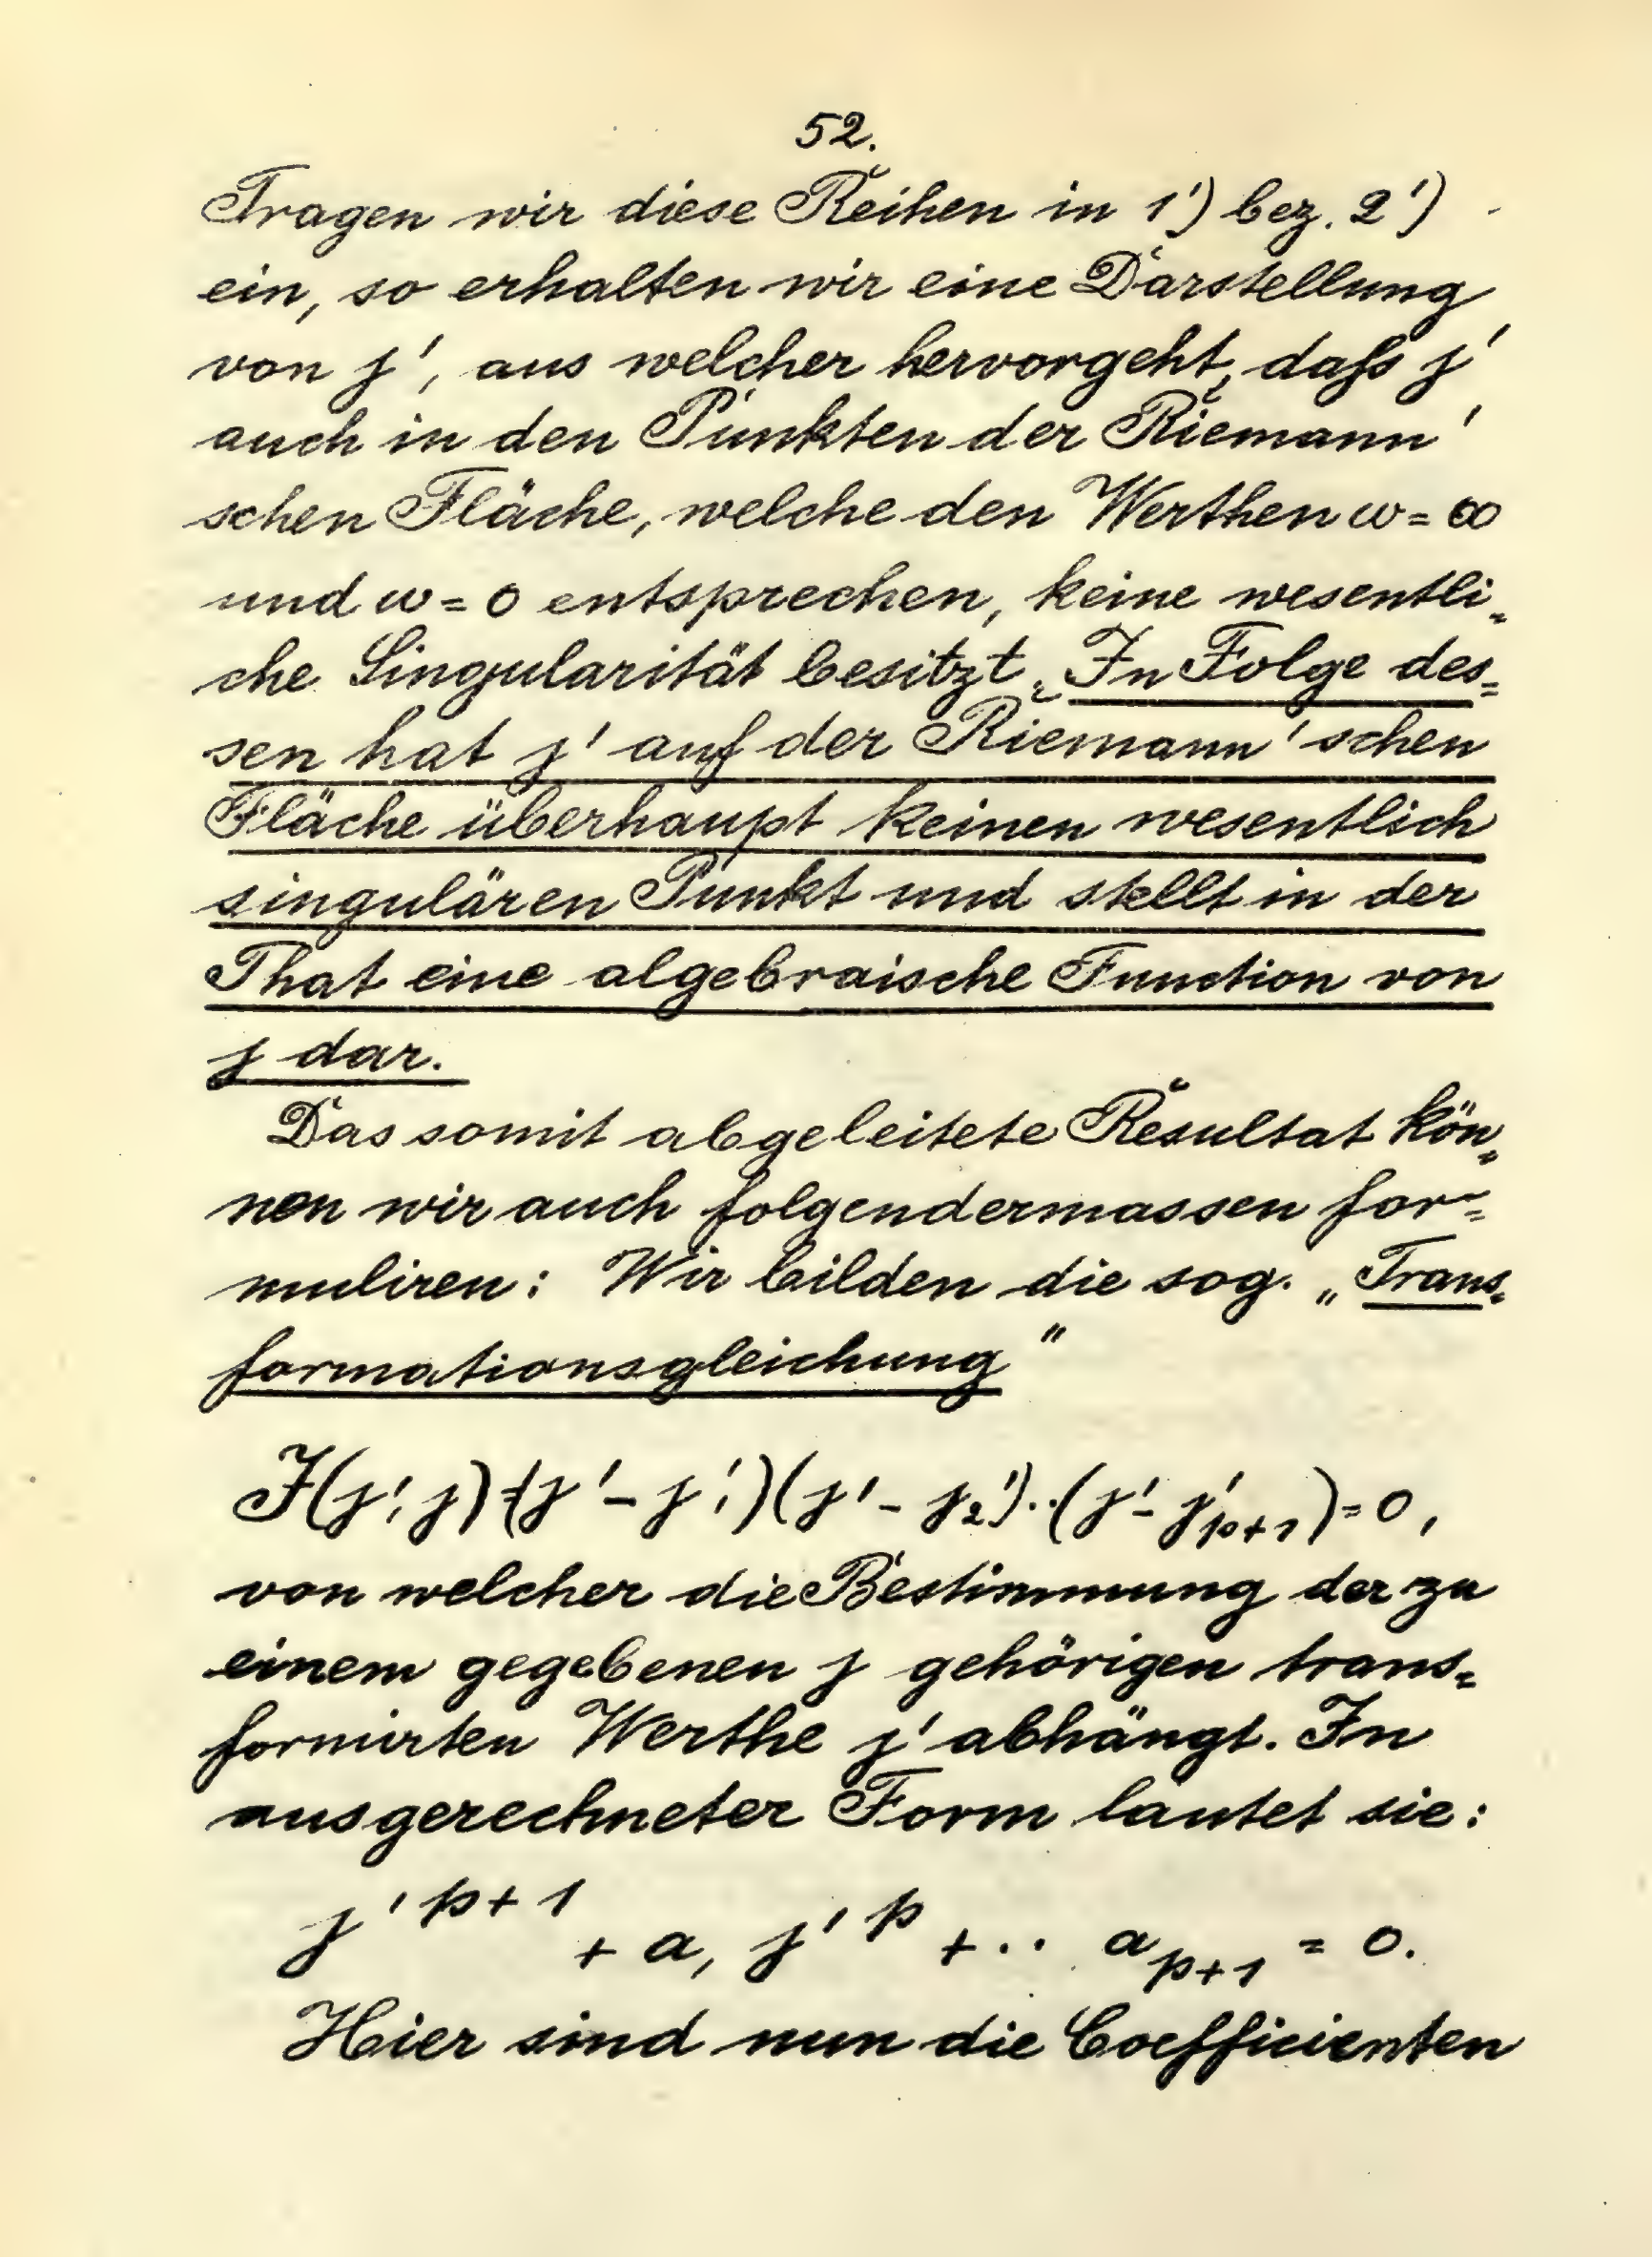 52.
Tragen wir diese Reihen in 1') bez. 2')
ein, so erhalten wir eine Darstellung
von j', aus welcher hervorgeht, daſs j'
auch in den Punkten der Riemann'
schen Fläche, welche den Werthen ω = ∞
und ω = 0 entsprechen, keine wesentli=
che Singularität besitzt. In Folge des=
sen hat j' auf der Riemann'schen
Fläche überhaupt keinen wesentlich
singulären Punkt und stellt in der
That eine algebraische Function von
j dar.
Das somit abgeleitete Resultat kön=
nen wir auch folgendermassen for=
muliren: Wir bilden die sog. „Trans=
formationsgleichung"
F(j', j) = (j' - j'₁)(j' - j₂')..(j' - j'ₚ₊₁) = 0,
von welcher die Bestimmung der zu
einem gegebenen j gehörigen trans=
formirten Werthe j' abhängt. In
ausgerechneter Form lautet sie:
j'^{p+1} + a₁ j'^p + .. a_{p+1} = 0.
Hier sind nun die Coefficienten